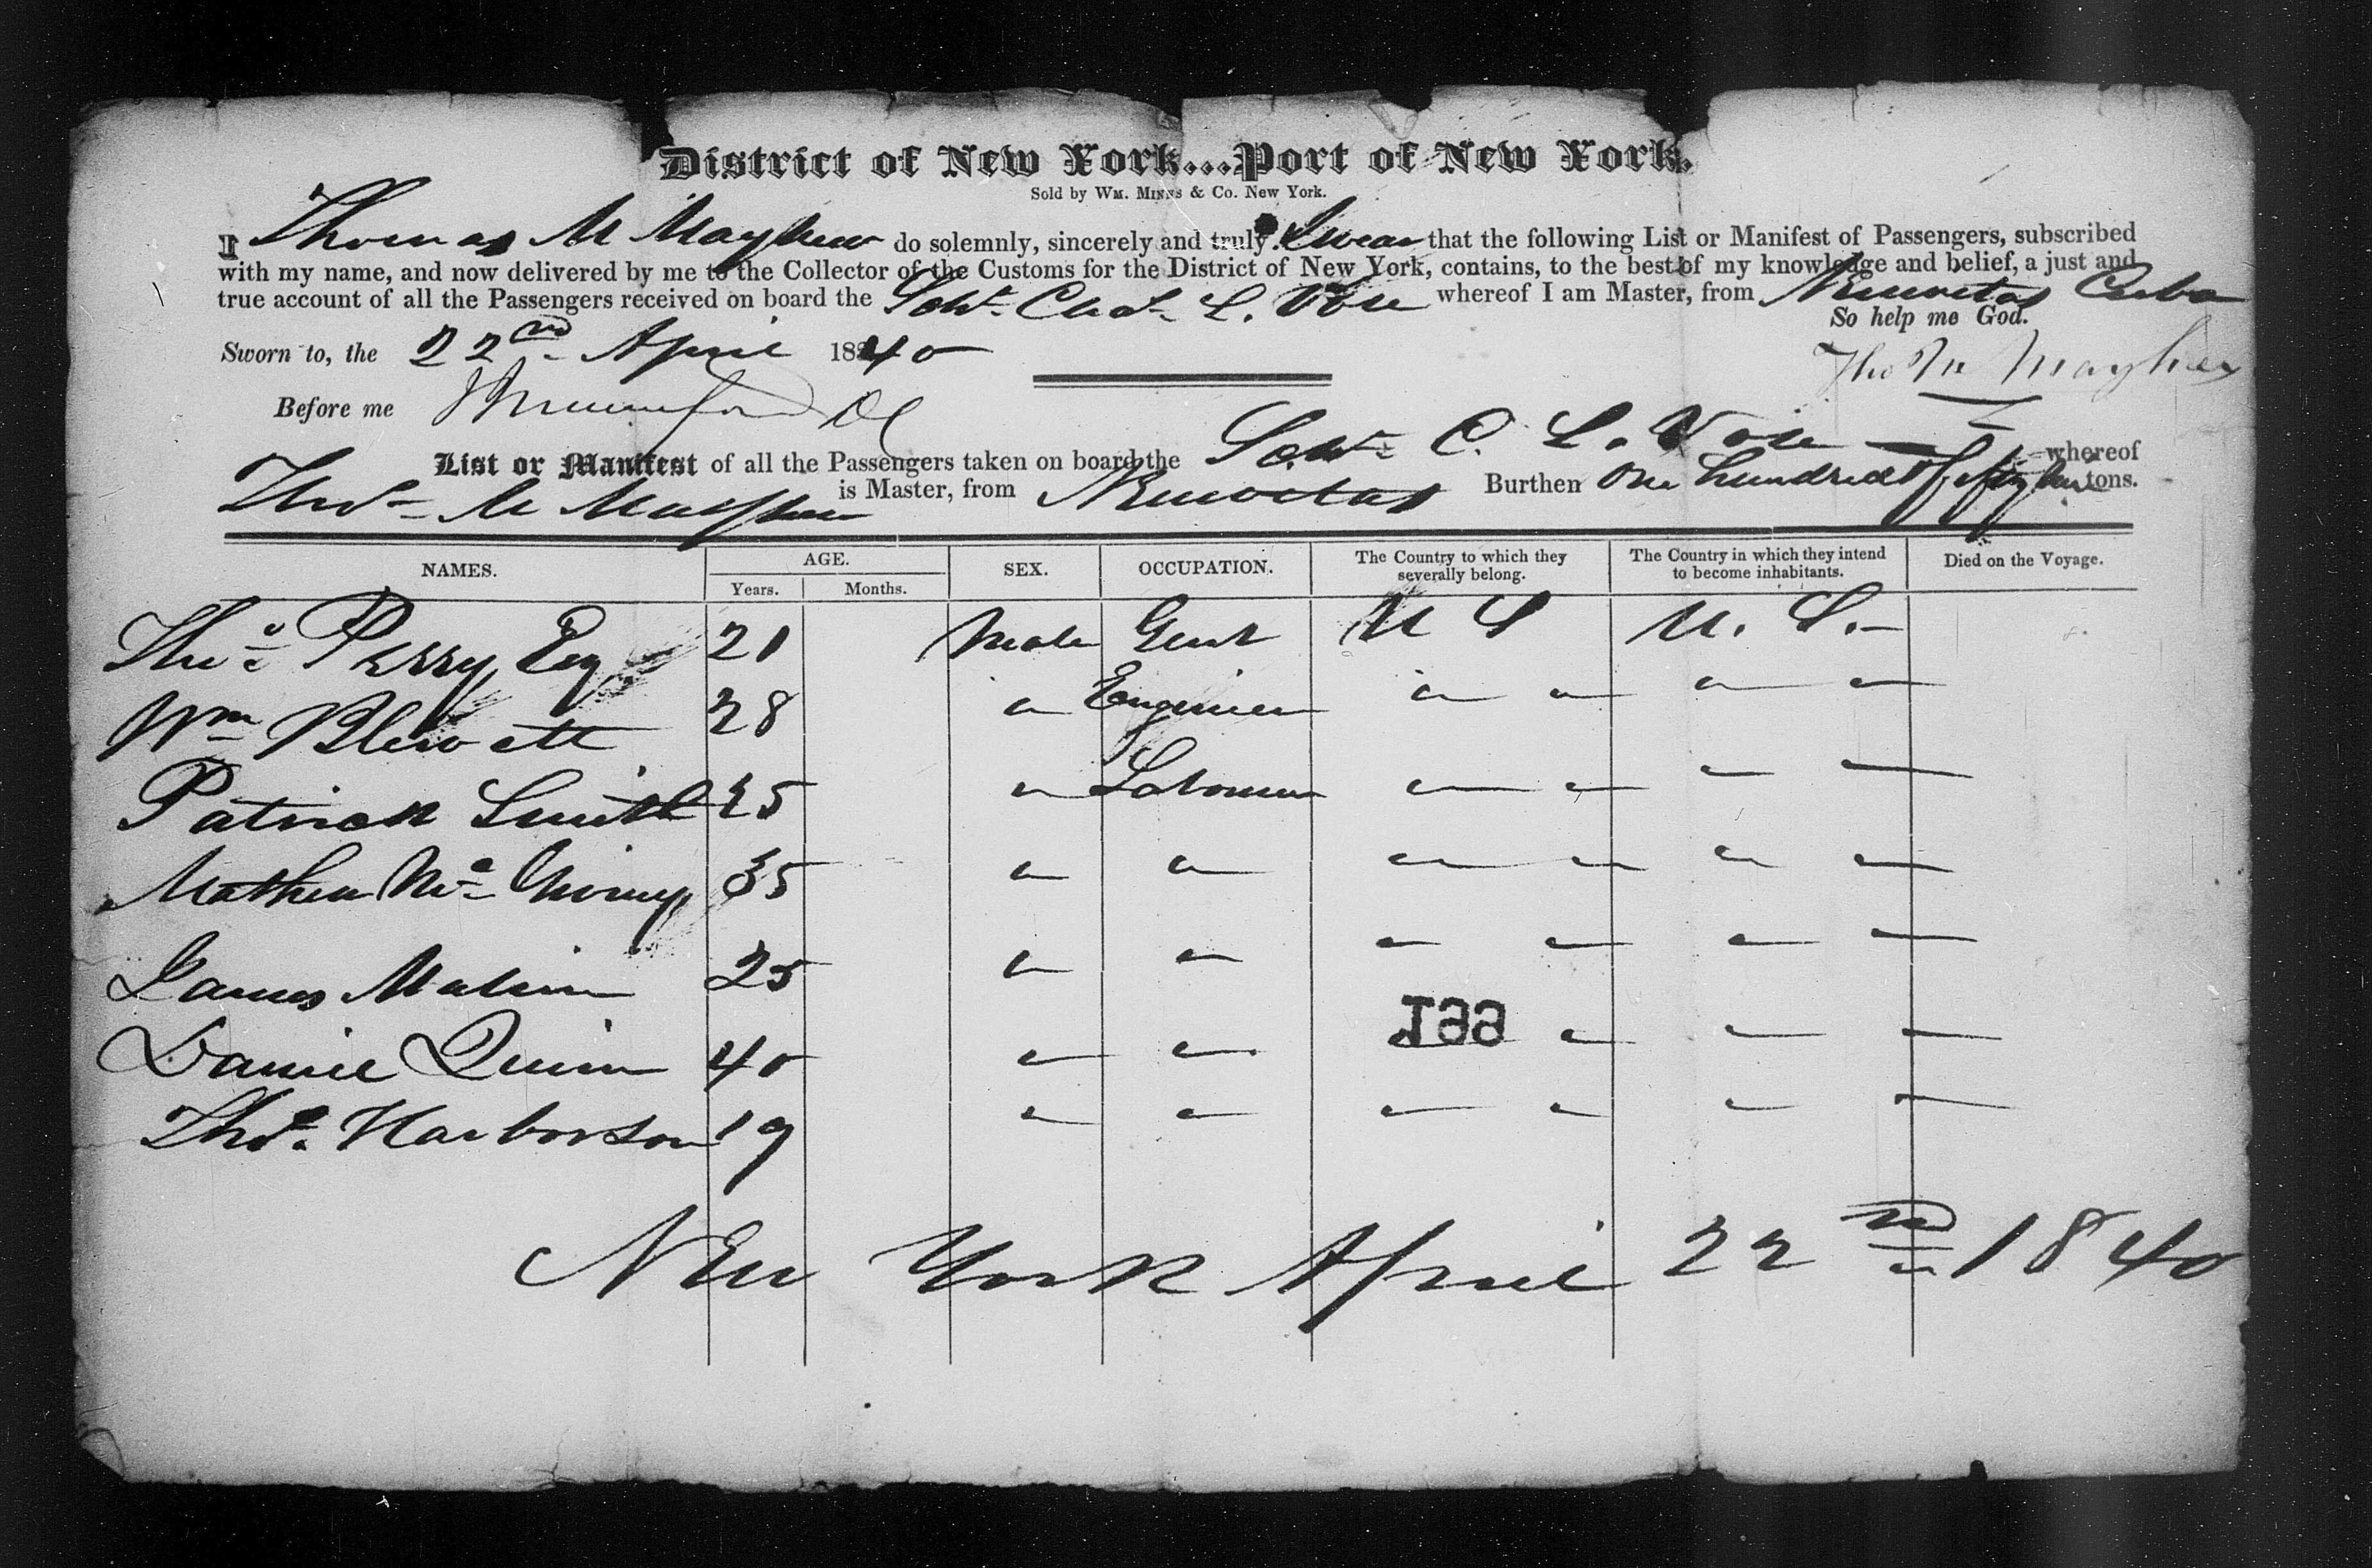 District of New York...Port of New York.
Sold by Wm. Minns & Co. New York.
I Thomas M Mayhew do solemnly, sincerely and truly Swear that the following List or Manifest of Passengers, subscribed
with my name, and now delivered by me to the Collector of the Customs for the District of New York, contains, to the best of my knowledge and belief, a just and
true account of all the Passengers received on board the Schr. Chas. L. Vose whereof I am Master, from Neuvetas Cuba
So help me God.
Sworn to, the 22nd April 1840
Thos M Mayhew
Before me
List or Manifest of all the Passengers taken on board the Schr C. L. Vose whereof
Thos M Mayhew is Master, from Neuvetas Burthen One hundred tons.
NAMES. AGE. SEX. OCCUPATION. The Country to which they severally belong. The Country in which they intend to become inhabitants. Died on the Voyage.
Years. Months.
Thos Perry Esq 21 Male Gent U S U. S.
Wm Blewett 28 " Engineer " " " "
Patrick Smith 35 " Labourer " " " "
Mathew Mc 35 " " " " " "
James Malin 25 " " " " " "
Daniel Quinn 40 " " " " " "
199
Thos. Harborson 19 " " " " " "
New York April 22nd 1840